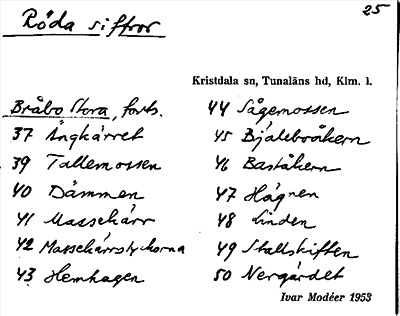 25
Röda siffror
Kristdala sn, Tunaläns hd, Klm. l.
Bråbo Stora, forts.
37 Ängkärret
39 Tallemossen
40 Dämmen
41 Massekärr
42 Massekärrstyckorna
43 Hemhagen
44 Sågemossen
45 Bjäleboåkern
46 Baståkern
47 Hägnen
48 Linden
49 Stallskiften
50 Nergärdet
Ivar Modéer 1953